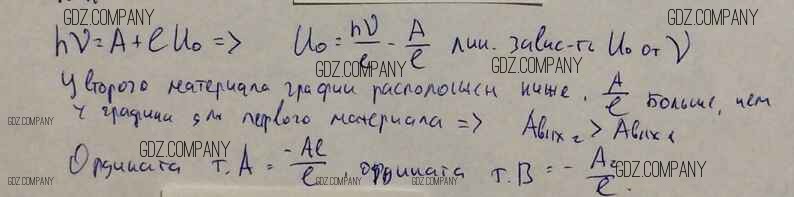 GDZ.COMPANY GDZ.COMPANY
hν = A + eU₀ => U₀ = hν/e - A/e лин. завис-ть U₀ от ν
GDZ.COMPANY GDZ.COMPANY
У второго материала график расположен ниже, A/e больше, чем
GDZ.COMPANY GDZ.COMPANY
у графика для первого материала => Aвых₂ > Aвых₁
GDZ.COMPANY GDZ.COMPANY
Ордината т. A = -A₁/e, ордината т. B = - A₂/e.
GDZ.COMPANY GDZ.COMPANY GDZ.COMPANY